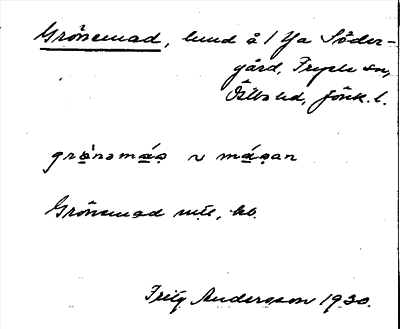 Grönemad, lund å 1 Ya Söder-
gård, Fryele sn,
Östbo hd, Jönk. l.
grö̀nəmáə ~ máəan
Grönemad ute, kb.
Fritz Andersson 1930.